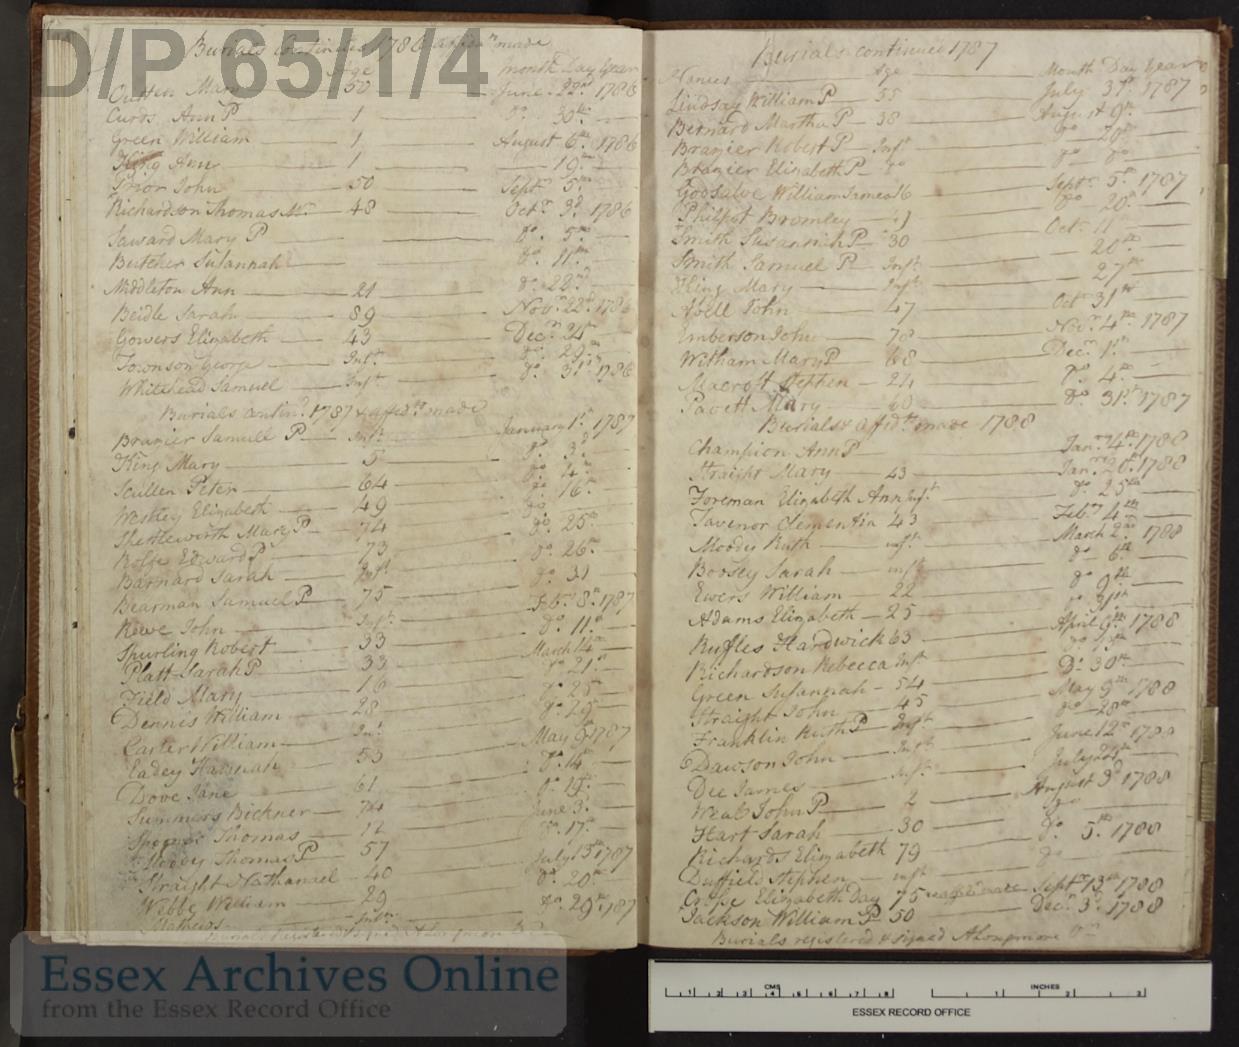 D/P 65/1/4
Burials Continued 1786 & affid.ts made
Age Month Day Year
Mary 50 June 22d 1786
Curds Ann P 1 do 30th
Green William 1 August 6th 1786
King Ann 1 19th
Prior John 50 Septr 5th
Richardson Thomas 48 Octr 3d 1786
Saward Mary P do 5th
Butcher Susannah do 11th
Middleton Ann 21 do 22nd
Beidle Sarah 89 Novr 22d 1786
Gowers Elizabeth 43 Decr 24th
Townson George Inft do 29th
Whitehead Samuel Inft do 31st 1786
Burials contind 1787 & affidts made
Brazier Samuell P Inft January 1st 1787
King Mary 5 do 3d
Scillen Peter 64 do 4th
Westley Elizabeth 49 do 16th
Shettleworth Mary P 74 do
Rolfe Edward P 73 do 25th
Barnard Sarah Inft do 26th
Bearman Samuel P 75 do 31
Rowe John Inft Feb. 8th 1787
Spurling Robert 33 do 11th
Platt Sarah P 33 March 14th
Field Mary 16 do 21st
Dennis William 28 do 25
Carter William Inft do 29th
Eadey Hannah 53 May 9th 1787
Dove Jane 61 do 14th
Summers Bickner 74 do 19th
Spooner Thomas 12 June 3d
Moody Thomas P 57 do 17th
Straight Nathanael 40 July 13th 1787
Webby William 29 do 20th
Inft do 29th 1787
Burials registered & signed A Longmore
Burials continued 1787
Names Age Month Day Year
Lindsay William P 55 July 31st 1787
Bernard Martha P 38 August 9th
Brazier Robert P Inft do 20th
Brazier Elizabeth P do do do
Godsalve William 16 Septr 5th 1787
Philpot Bromley do 20th
Smith Susannah P 30 Octr 11
Smith Samuel P Inft 20th
King Mary Inft 27th
Abell John 47 Octr 31st
Emberson John 78 Novr 4th 1787
Witham Mary P 68 Decr 1st
Macroft Stephen 24 do 4th
Pavett Mary 60 do 31st 1787
Burials & affidts made 1788
Champion Ann P Janry 4th 1788
Straight Mary 43 Janry 20th 1788
Foreman Elizabeth Ann Inft do 25th
Tavenor Clementia 43 Feby 4th
Moody Ruth inft March 2nd 1788
Boosey Sarah inft do 6th
Ewers William 22 do 9th
Adams Elizabeth 25 do 31st
Ruffles Hardwick 63 April 9th 1788
Richardson Rebecca Inft do 13th
Green Susannah 54 Do 30th
Straight John 45 May 9th 1788
Franklin Ruth P Inft do 28th
Dawson John Inft June 12th 1788
Dee James Inft July 24th
Weal John P 2 August 3d 1788
Hart Sarah 30 do
Richards Elizabeth 79 do 5th 1788
Duffield Stephen inft do
Elizabeth Day 75 no affidt made Septr 13th 1788
Jackson William P 50 Decr 3d 1788
Burials registered & signed A Longmore
Essex Archives Online
from the Essex Record Office
CMS
1 2 3 4 5 6 7 8
INCHES
1 2 3
ESSEX RECORD OFFICE